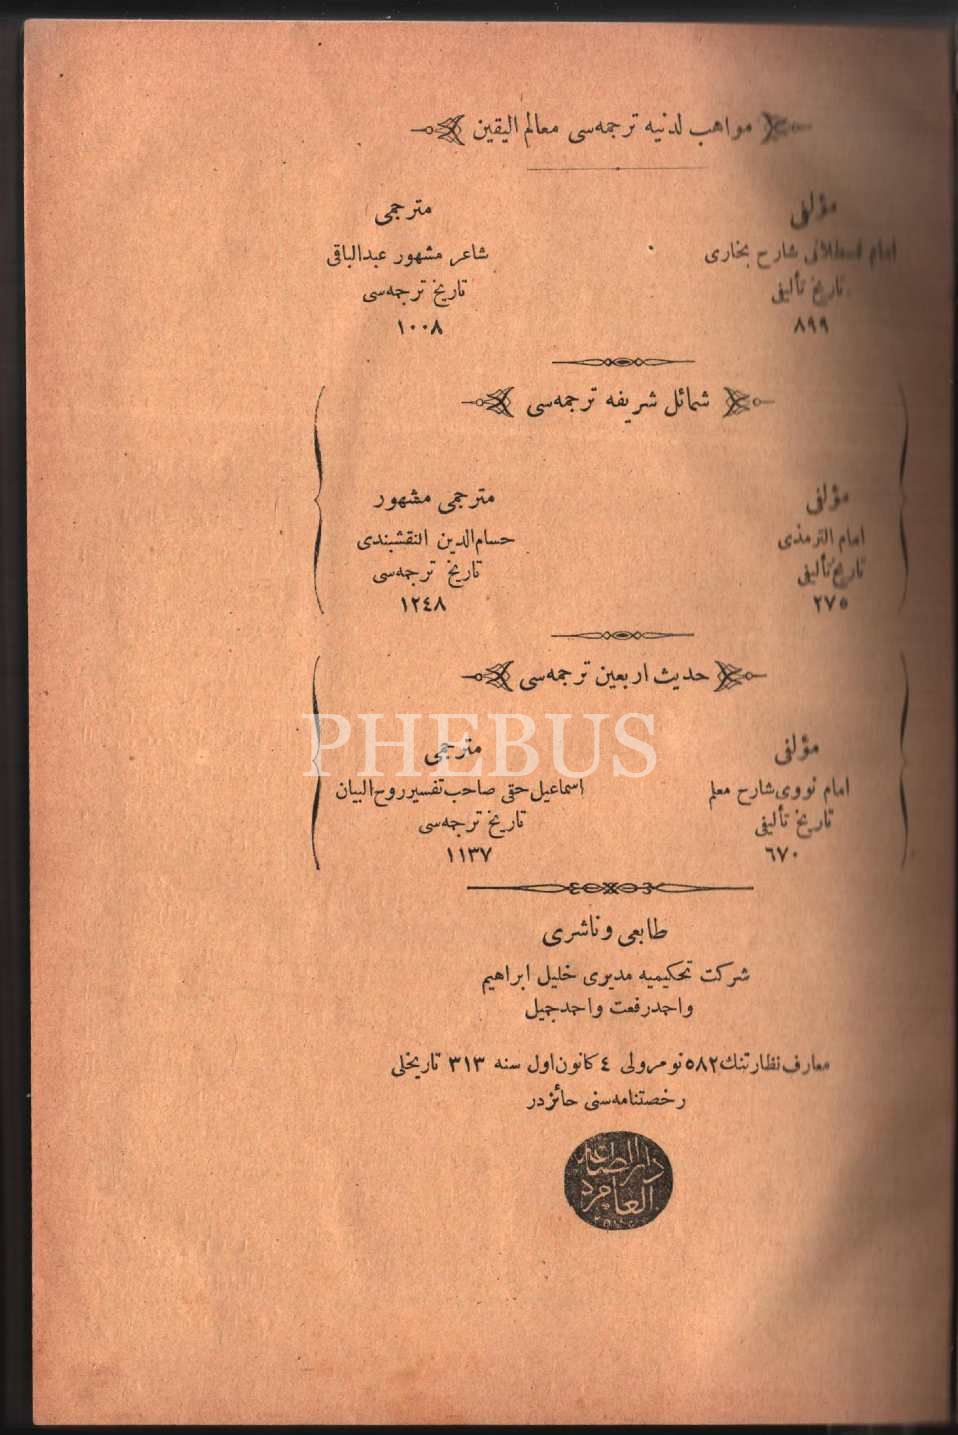 مواهب لدنیه ترجمه‌سی معالم الیقین
مؤلفی
امام قسطلانی شارح بخاری
تاریخ تألیفی
٨٩٩
مترجمی
شاعر مشهور عبدالباقی
تاریخ ترجمه‌سی
١٠٠٨
شمائل شریفه ترجمه‌سی
مؤلفی
امام الترمذی
تاریخ تألیفی
٢٧٥
مترجمی مشهور
حسام‌الدین النقشبندی
تاریخ ترجمه‌سی
١٢٤٨
حدیث اربعین ترجمه‌سی
مؤلفی
امام نووی شارح معلم
تاریخ تألیفی
٦٧٠
مترجمی
اسماعیل حقی صاحب تفسیر روح البیان
تاریخ ترجمه‌سی
١١٣٧
PHEBUS
طابعی و ناشری
شرکت تحکیمیه مدیری خلیل ابراهیم
واحد رفعت واحد جمیل
معارف نظارتنك ٥٨٢ نومرولی ٤ کانون اول سنه ٣١٣ تاریخلی
رخصتنامه‌سنی حائزدر
دار الطباعة
العامره